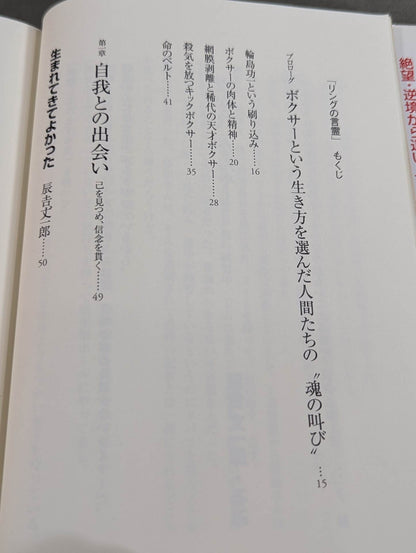 絶望・逆境から這い
『リングの言霊』 もくじ
プロローグ ボクサーという生き方を選んだ人間たちの〝魂の叫び〟…15
輪島功一という刷り込み……16
ボクサーの肉体と精神……20
網膜剥離と稀代の天才ボクサー……28
殺気を放つキックボクサー……35
命のベルト……41
第一章 自我との出会い 己を見つめ、信念を貫く……49
生まれてきてよかった 辰𠮷丈一郎……50